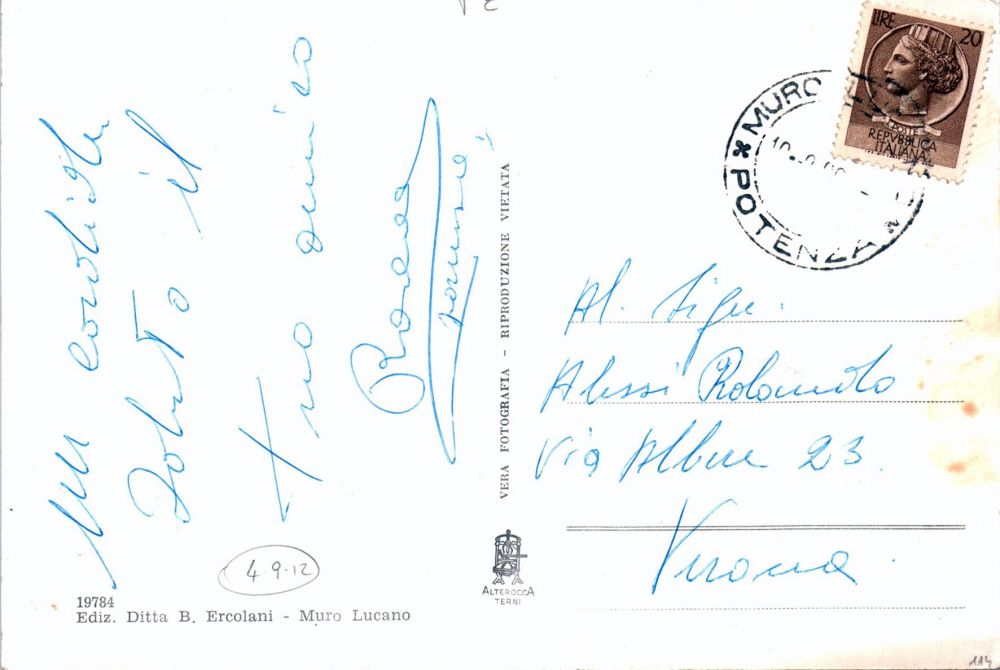 Un cordiale
saluto il
tuo amico
19784
Ediz. Ditta B. Ercolani - Muro Lucano
4.9.12
VERA FOTOGRAFIA - RIPRODUZIONE VIETATA
ALTEROCCA
TERNI
LIRE 20
POSTE
REPVBBLICA
ITALIANA
MURO
POTENZA
Al. Sigr.
Alessi Rolando
Via 23.
Verona
114